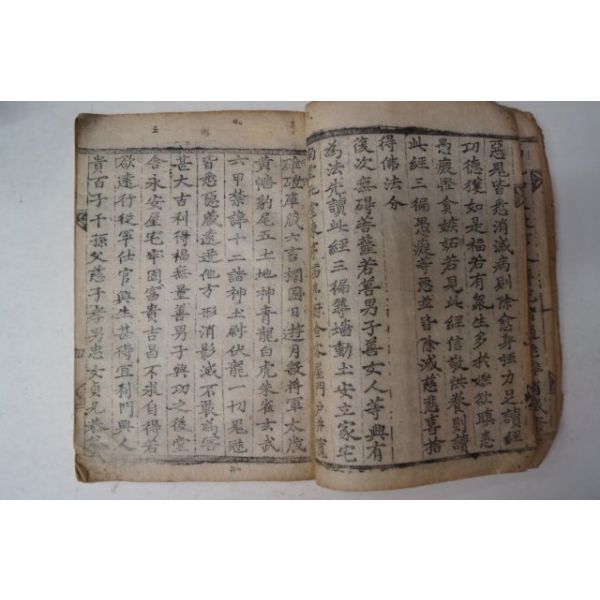 惡鬼皆悉消滅病則除愈身強力足讀經
功德獲如是福若有衆生多於婬欲瞋恚
愚癡慳貪嫉妬若見此經信敬供養則讀
此經三徧愚癡等惡並皆除滅慈悲喜捨
得佛法分
復次無碍菩薩若善男子善女人等興有
為法先讀此經三徧築墻動土安立家宅
南堂北堂東序西序厨舍客屋門戶井竈
碓磑庫藏六畜欄圂日遊月殺將軍太歲
黃幡豹尾五土地神青龍白虎朱雀玄武
六甲禁諱十二諸神土尉伏龍一切鬼魅
皆悉隱藏遠迸他方形消影滅不敢為害
甚大吉利得福無量善男子興功之後堂
舍永安屋宅牢固富貴吉昌不求自得若
欲遠行從軍仕官興生甚得宜利門興人
貴百子千孫父慈子孝男忠女貞兄恭